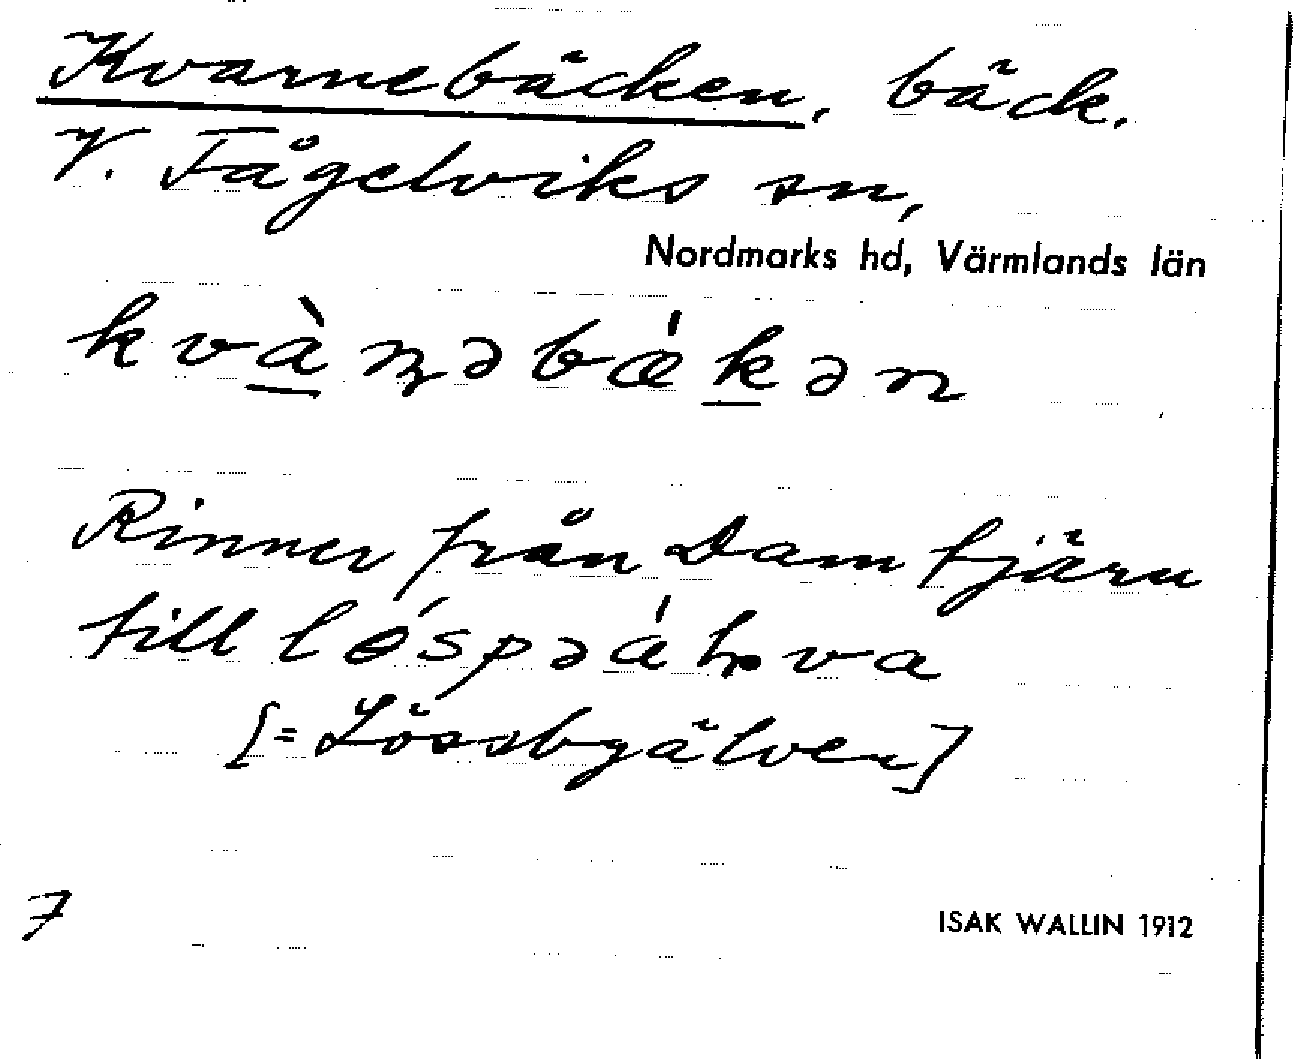 Kvarnebäcken, bäck.
V. Fågelviks sn,
Nordmarks hd, Värmlands län
kvàɳəbǽkən
Rinner från Damtjärn
till
[= Lössbyälven]
7
ISAK WALLIN 1912